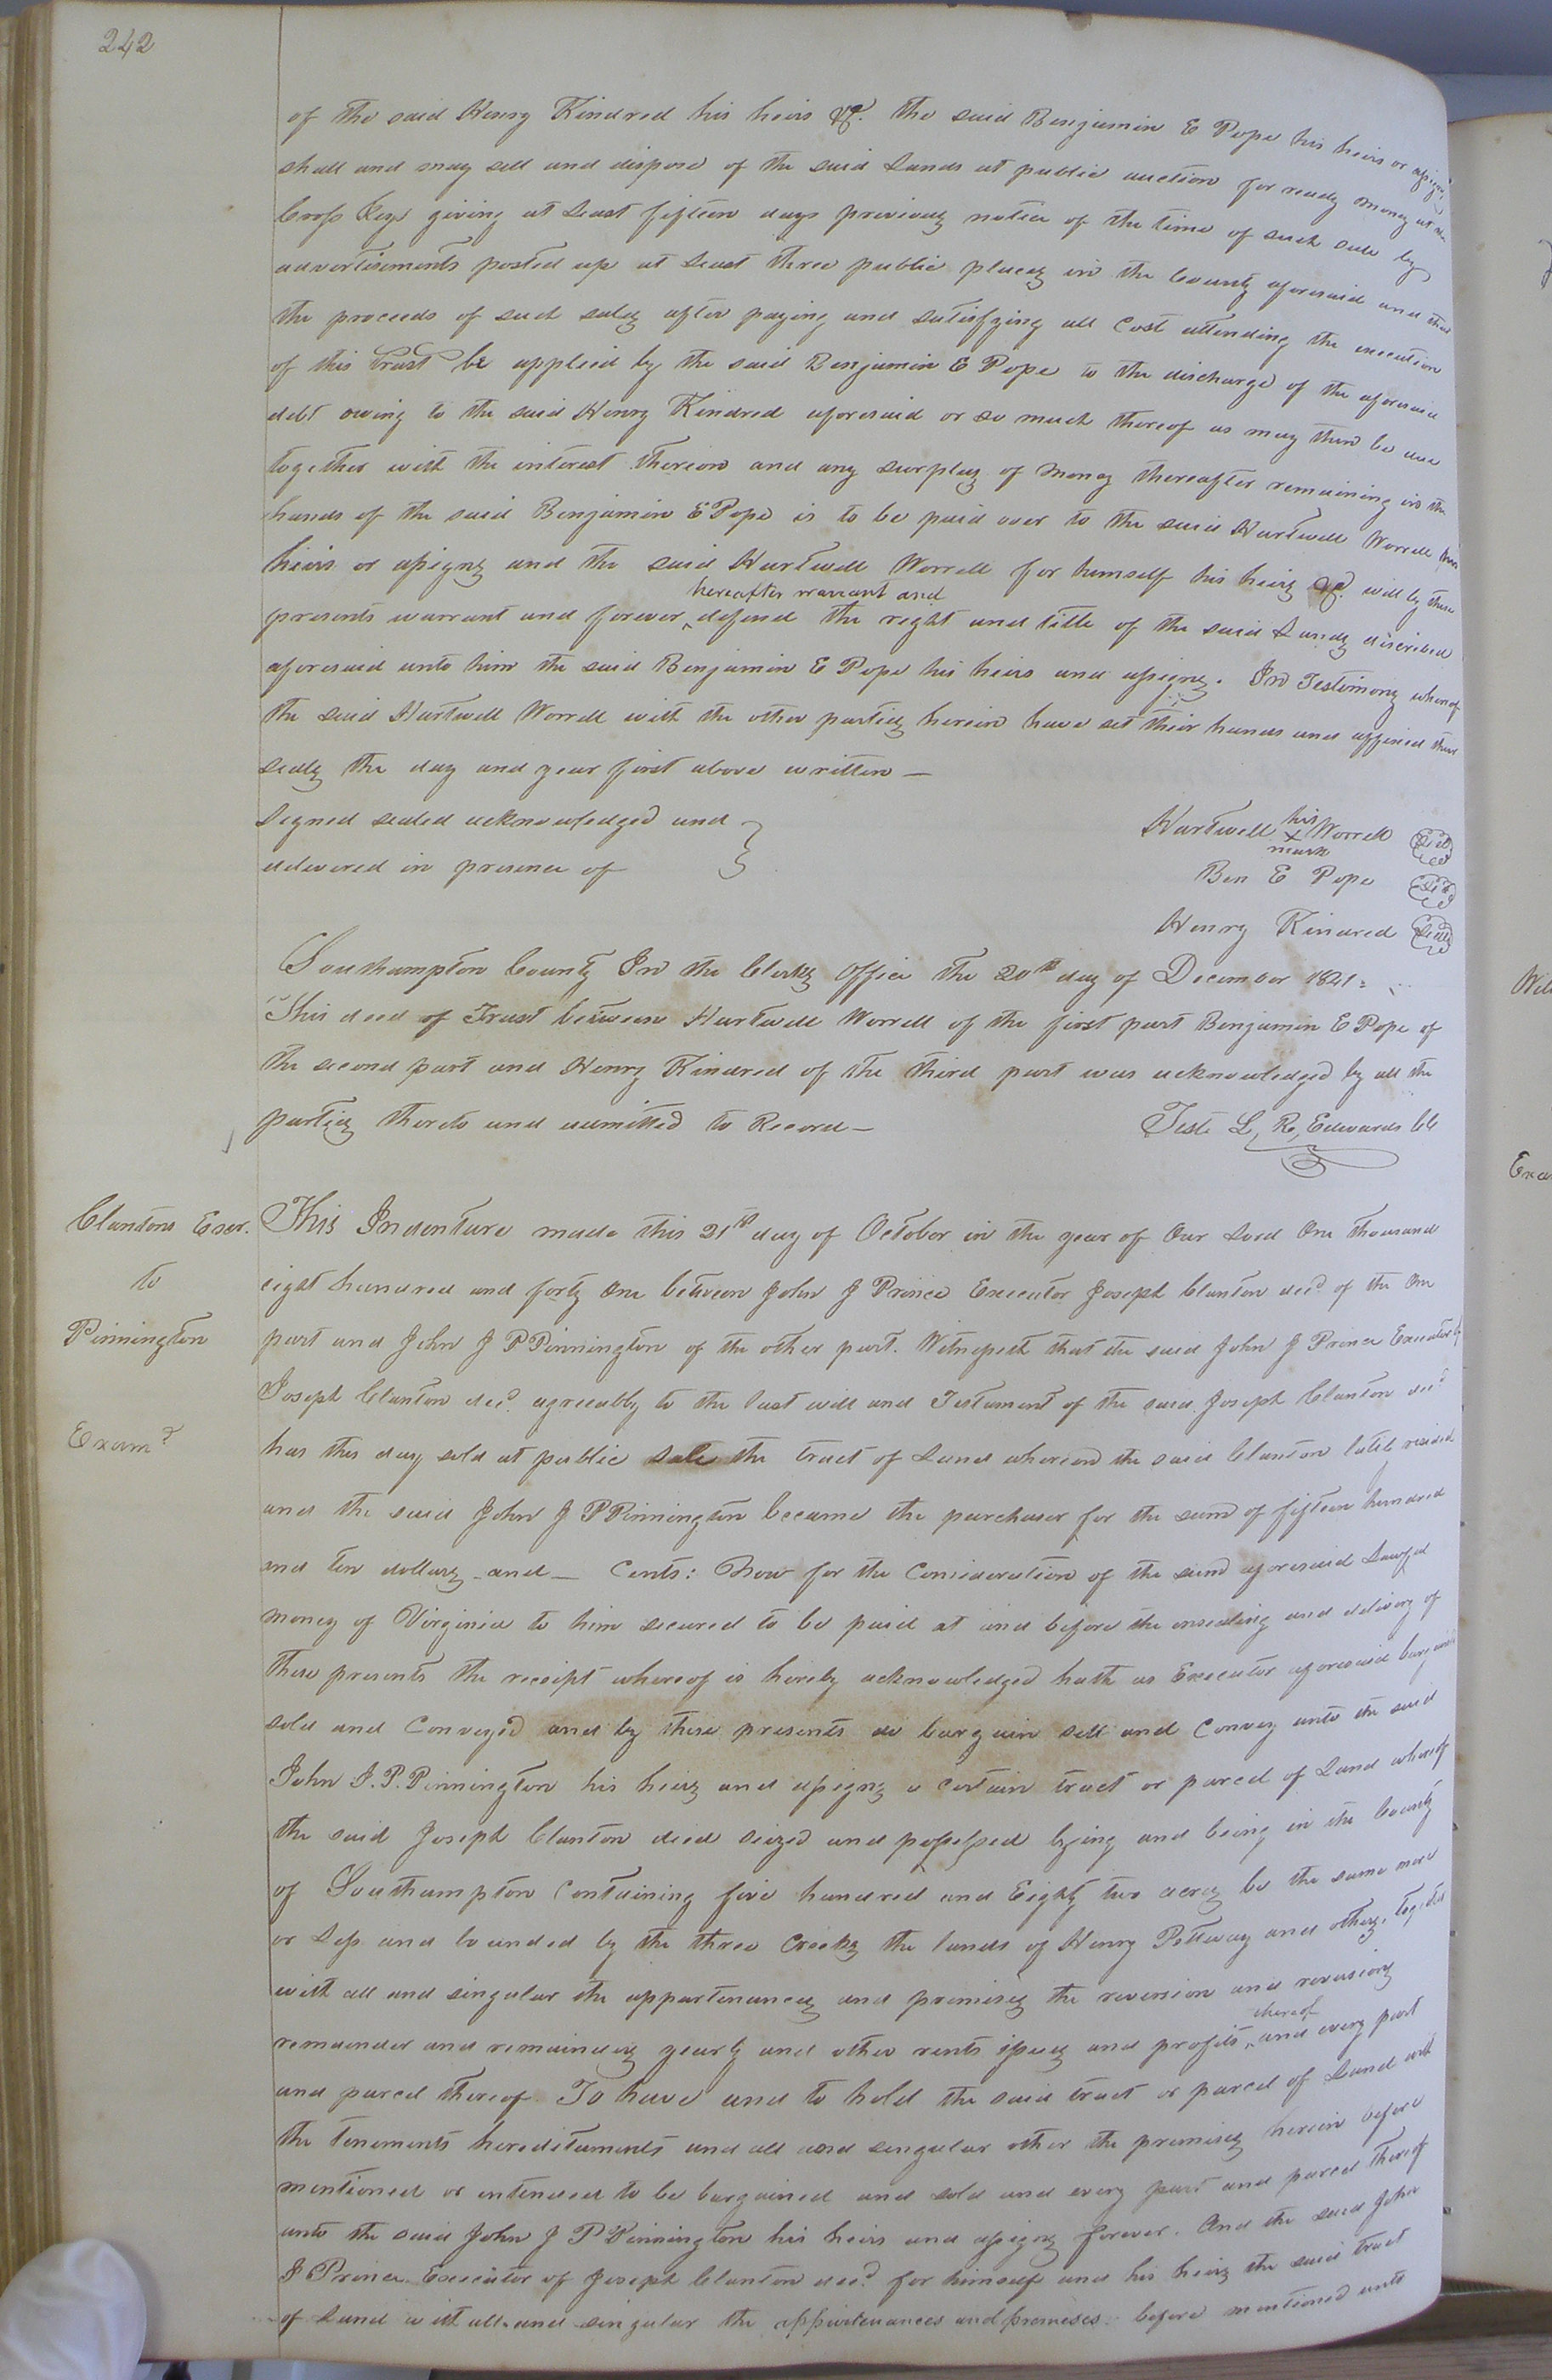 242
of the said Henry Kindred his heirs &c. the said Benjamin E Pope his heirs or assigns
shall and may sell and dispose of the said Lands at public auction for ready money at the
Cross Keys giving at Least fifteen days previous notice of the time of such sale by
advertisements posted up at Least three public places in the County aforesaid and that
the proceeds of such sales after paying and satisfying all Cost attending the execution
of this Trust be applied by the said Benjamin E Pope to the discharge of the aforesaid
debt owing to the said Henry Kindred aforesaid or so much thereof as may then be due
together with the interest thereon and any surplus of money thereafter remaining in the
hands of the said Benjamin E Pope is to be paid over to the said Hartwell Worrell his
heirs or assigns and the said Hartwell Worrell for himself his heirs &c. will by these
hereafter warrant and
presents warrant and forever defend the right and title of the said Lands discribed
aforesaid unto him the said Benjamin E Pope his heirs and assigns. In Testimony whereof
the said Hartwell Worrell with the other parties herein have set their hands and affixed their
seals the day and year first above written —
Signed sealed acknowledged and
delivered in presence of
Hartwell his X mark Worrell Seal
Ben E Pope Seal
Henry Kindred Seal
Southampton County In the Clerks Office the 20th day of December 1841
This deed of Trust between Hartwell Worrell of the first part Benjamin E Pope of
the second part and Henry Kindred of the third part was acknowledged by all the
parties thereto and admitted to Record —
Teste L. R. Edwards CC
Clantons Exer.
to
Pinnington
Examd
This Indenture made this 21st day of October in the year of Our Lord One thousand
eight hundred and forty One between John J Prince Executor Joseph Clanton decd of the One
part and John J P Pinnington of the other part. Witnesseth that the said John J Prince Executor of
Joseph Clanton decd. agreeably to the last will and Testament of the said Joseph Clanton decd
has this day sold at public sale the tract of Land whereon the said Clanton late resided
and the said John J P Pinnington became the purchaser for the sum of fifteen hundred
and ten dollars and — Cents: Now for the Consideration of the sum aforesaid Lawful
money of Virginia to him secured to be paid at and before the ensealing and delivery of
these presents the receipt whereof is hereby acknowledged hath as Executor aforesaid bargained
sold and Conveyed and by these presents do bargain sell and Convey unto the said
John J. P. Pinnington his heirs and assigns a certain tract or parcel of Land whereof
the said Joseph Clanton died seized and possessed lying and being in the County
of Southampton Containing five hundred and Eighty two acres be the same more
or Less and bounded by the three Creeks the lands of Henry Pettway and others, together
with all and singular the appartenances and premises the reversion and reversions
thereof
remainder and remainders yearly and other rents issues and profits and every part
and parcel thereof To have and to hold the said tract or parcel of Land with
the tenements hereditaments and all and singular other the premises herein before
mentioned or intended to be bargained and sold and every part and parcel thereof
unto the said John J P Pinnington his heirs and assigns forever. And the said John
J Prince Executor of Joseph Clanton decd. for himself and his heirs the said tract
of Land with all and singular the appurtenances and premises before mentioned unto